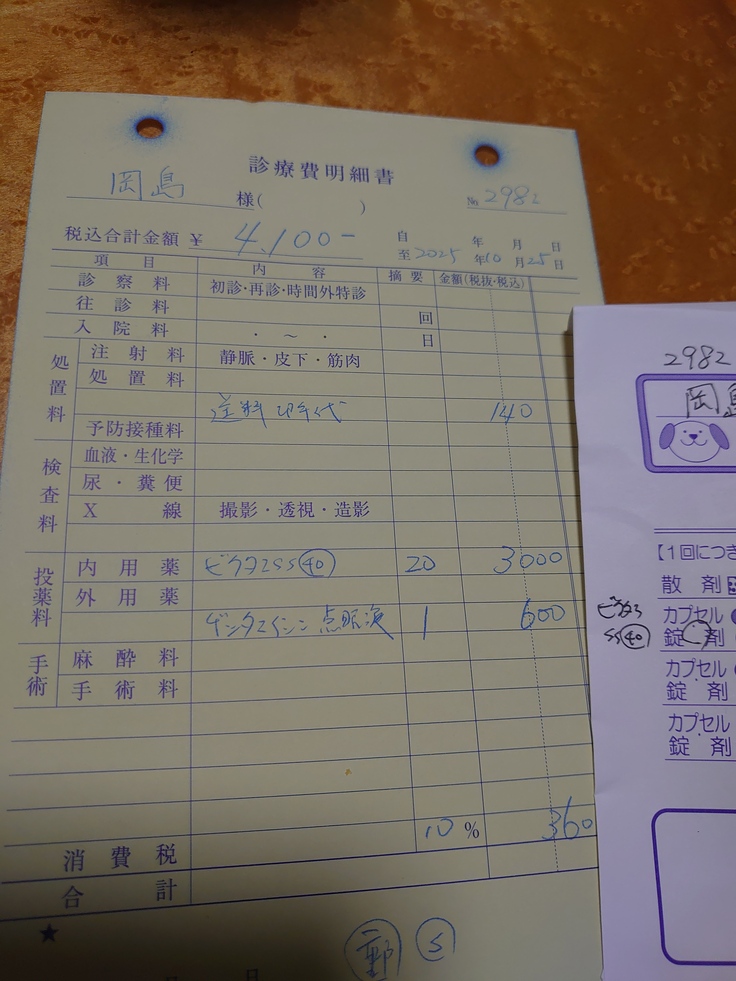 診療費明細書
岡島 様( ) № 2982
税込合計金額 ¥ 4,100-
自 年 月 日
至 2025 年 10 月 25 日
項目 内容 摘要 金額(税抜・税込)
診察料 初診・再診・時間外特診
往診料 回
入院料 ・ ~ ・ 日
処置料
注射料 静脈・皮下・筋肉
処置料
送料 切手代 140
予防接種料
検査料
血液・生化学
尿・糞便
X線 撮影・透視・造影
投薬料
内用薬 ビクタスSS㊵ 20 3000
外用薬
ゲンタマイシン 点眼液 1 600
手術
麻酔料
手術料
10 % 360
消費税
合計
★
郵 S
月 日
2982
岡島
【1回につき
散剤
ビクタス SS㊵
カプセル
錠剤
カプセル
錠剤
カプセル
錠剤